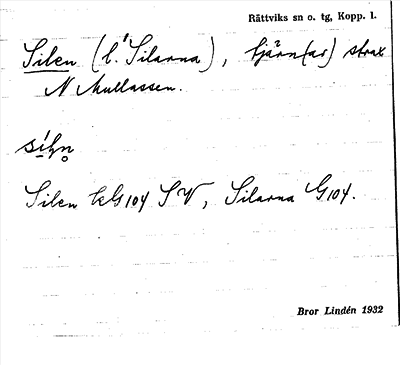 Rättviks sn o. tg, Kopp. l.
Silen (l. Silarna), tjärn(ar) strax
N Mullassen.
síl̥n̥
Silen kG104 SV, Silarna G104.
Bror Lindén 1932